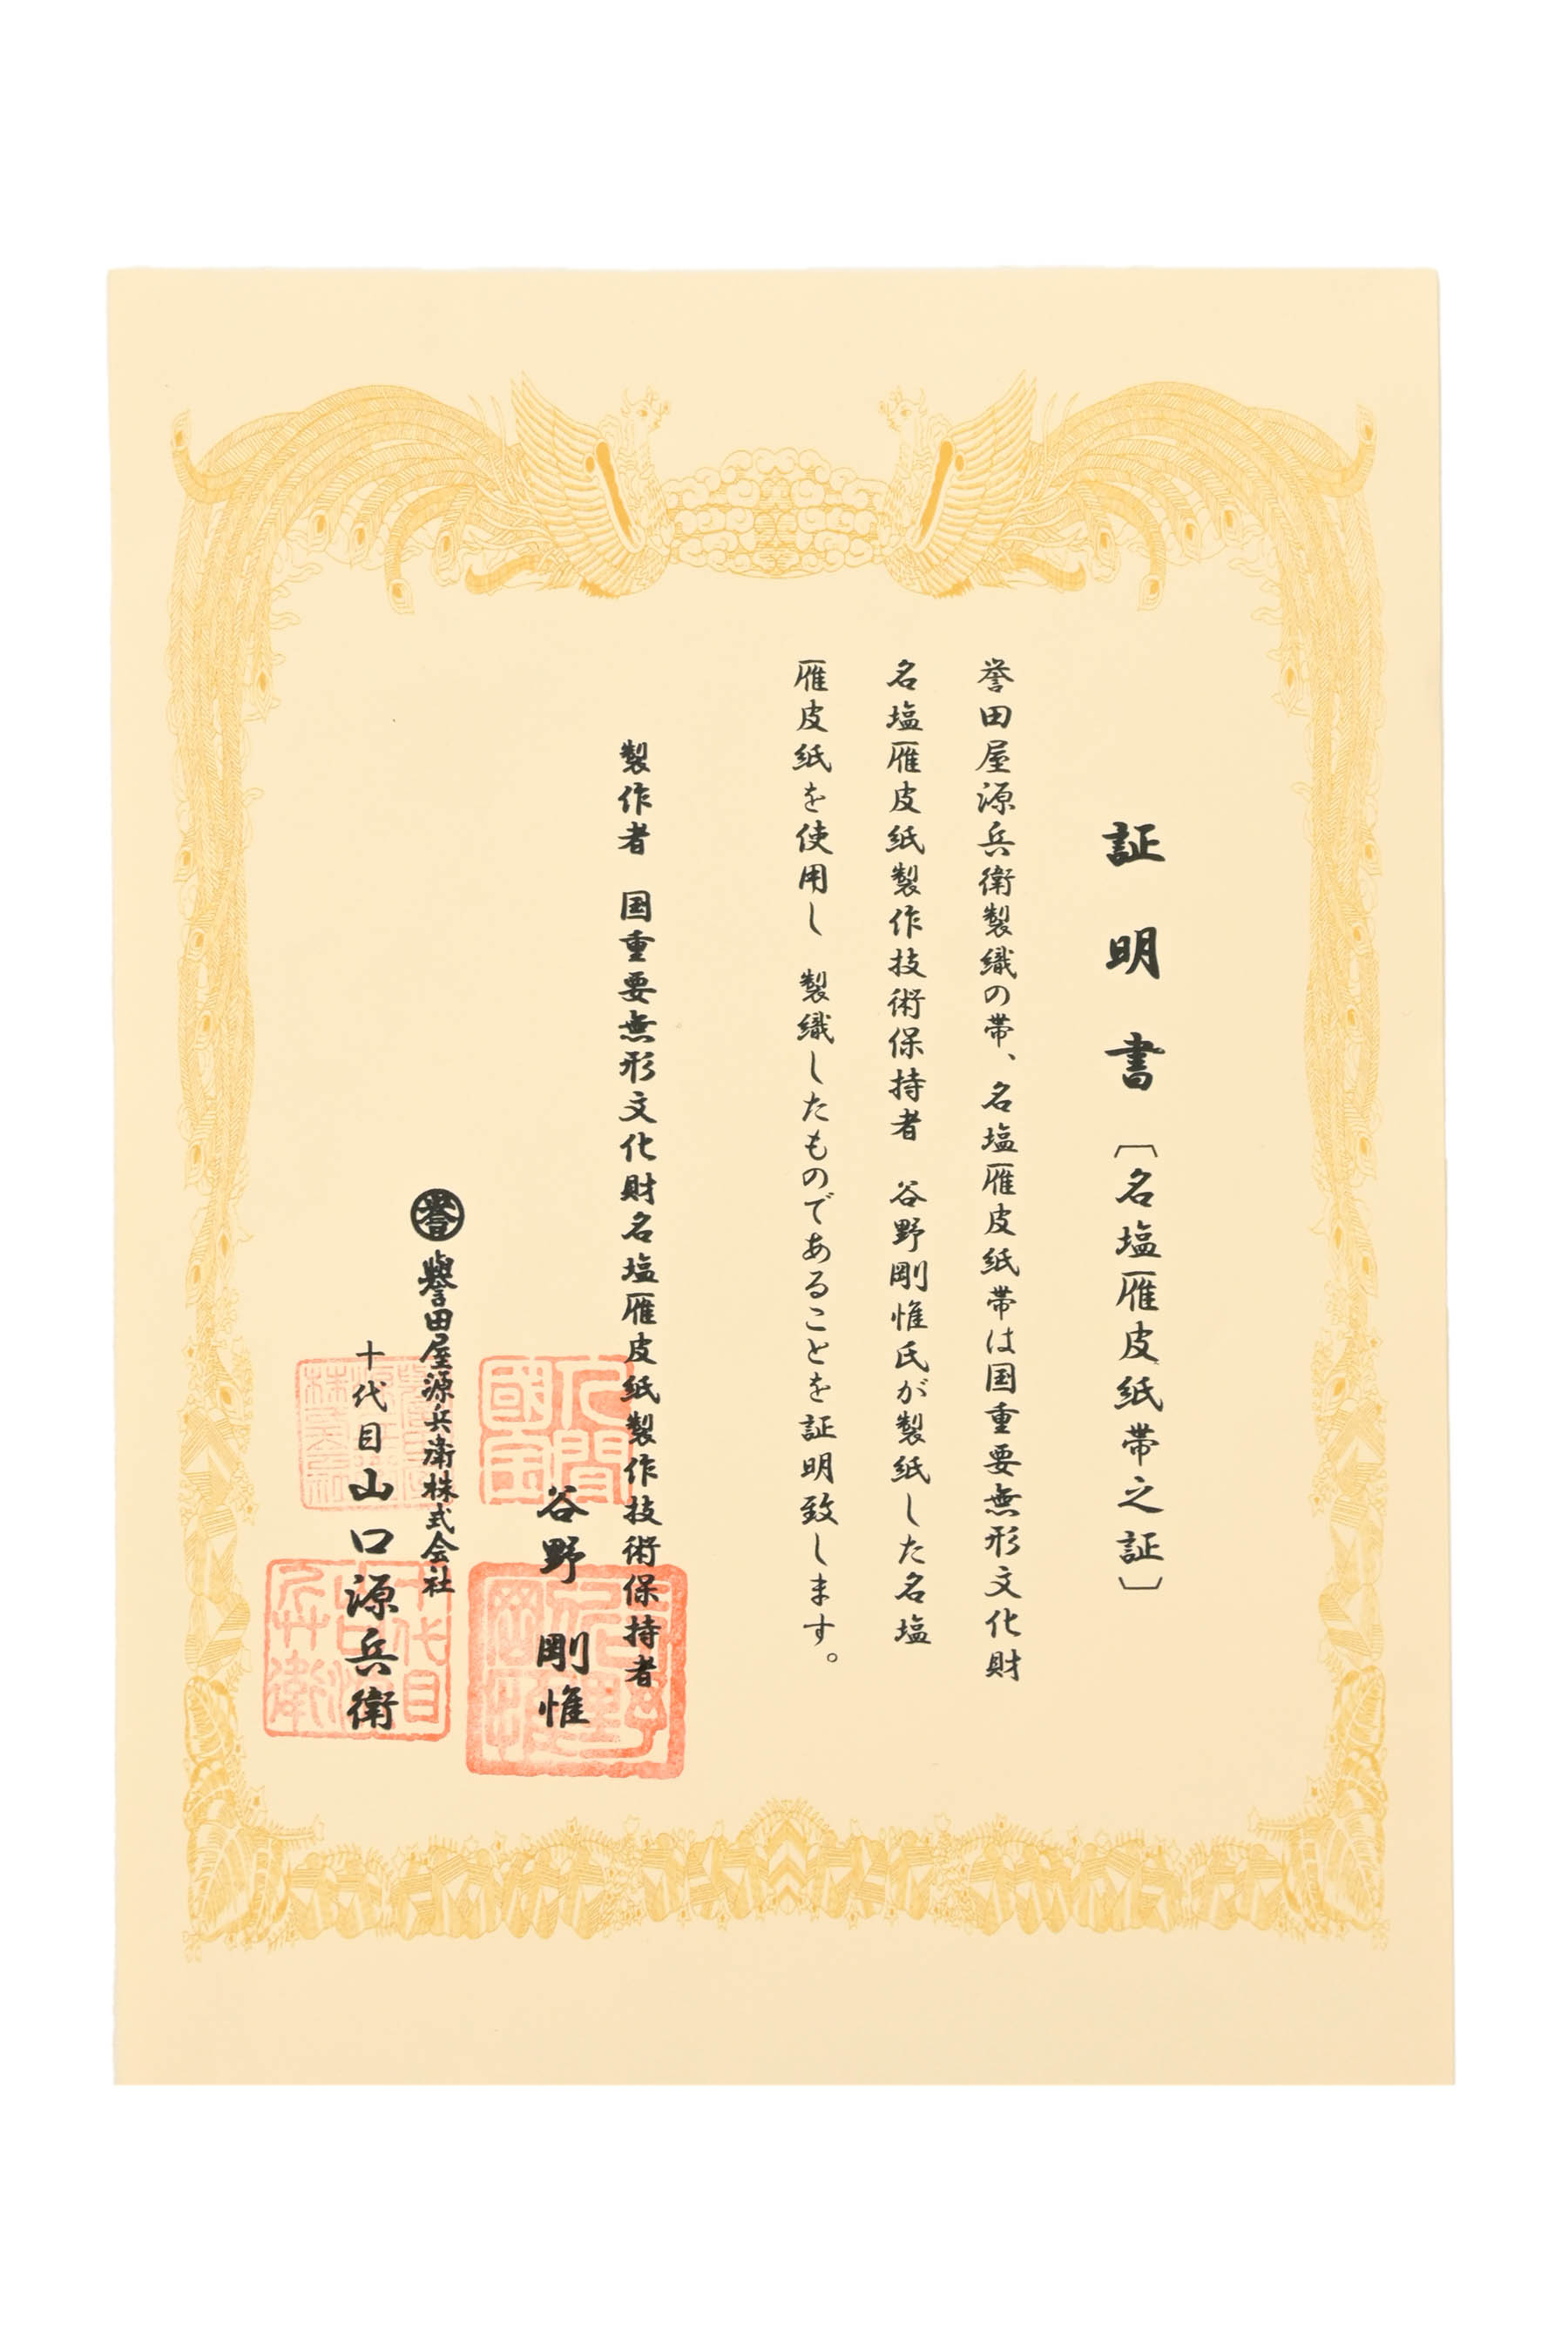 証明書〔名塩雁皮紙帯之証〕
誉田屋源兵衛製織の帯、名塩雁皮紙帯は国重要無形文化財
名塩雁皮紙製作技術保持者 谷野剛惟氏が製紙した名塩
雁皮紙を使用し 製織したものであることを証明致します。
製作者 国重要無形文化財名塩雁皮紙製作技術保持者
谷野 剛惟
人間國宝
誉 譽田屋源兵衛株式会社
十代目山口源兵衛